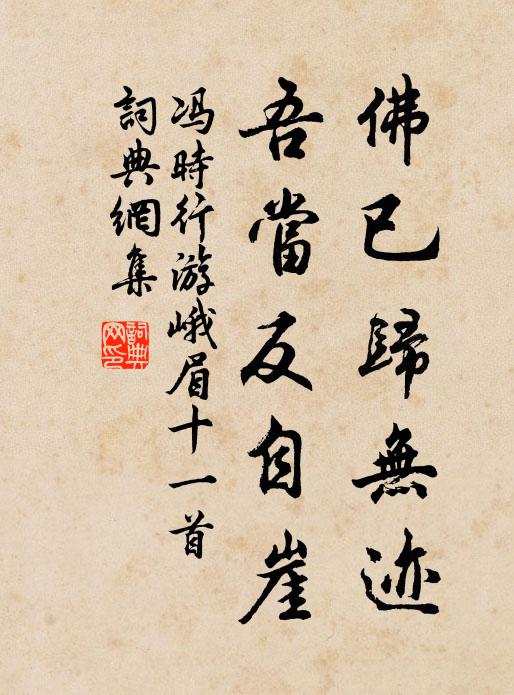 佛已歸無迹
吾當反自崖
冯時行游峨眉十一首
詞典網集
詞典
网印